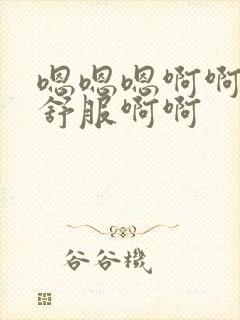 嗯嗯嗯啊啊
舒服啊啊
谷谷機